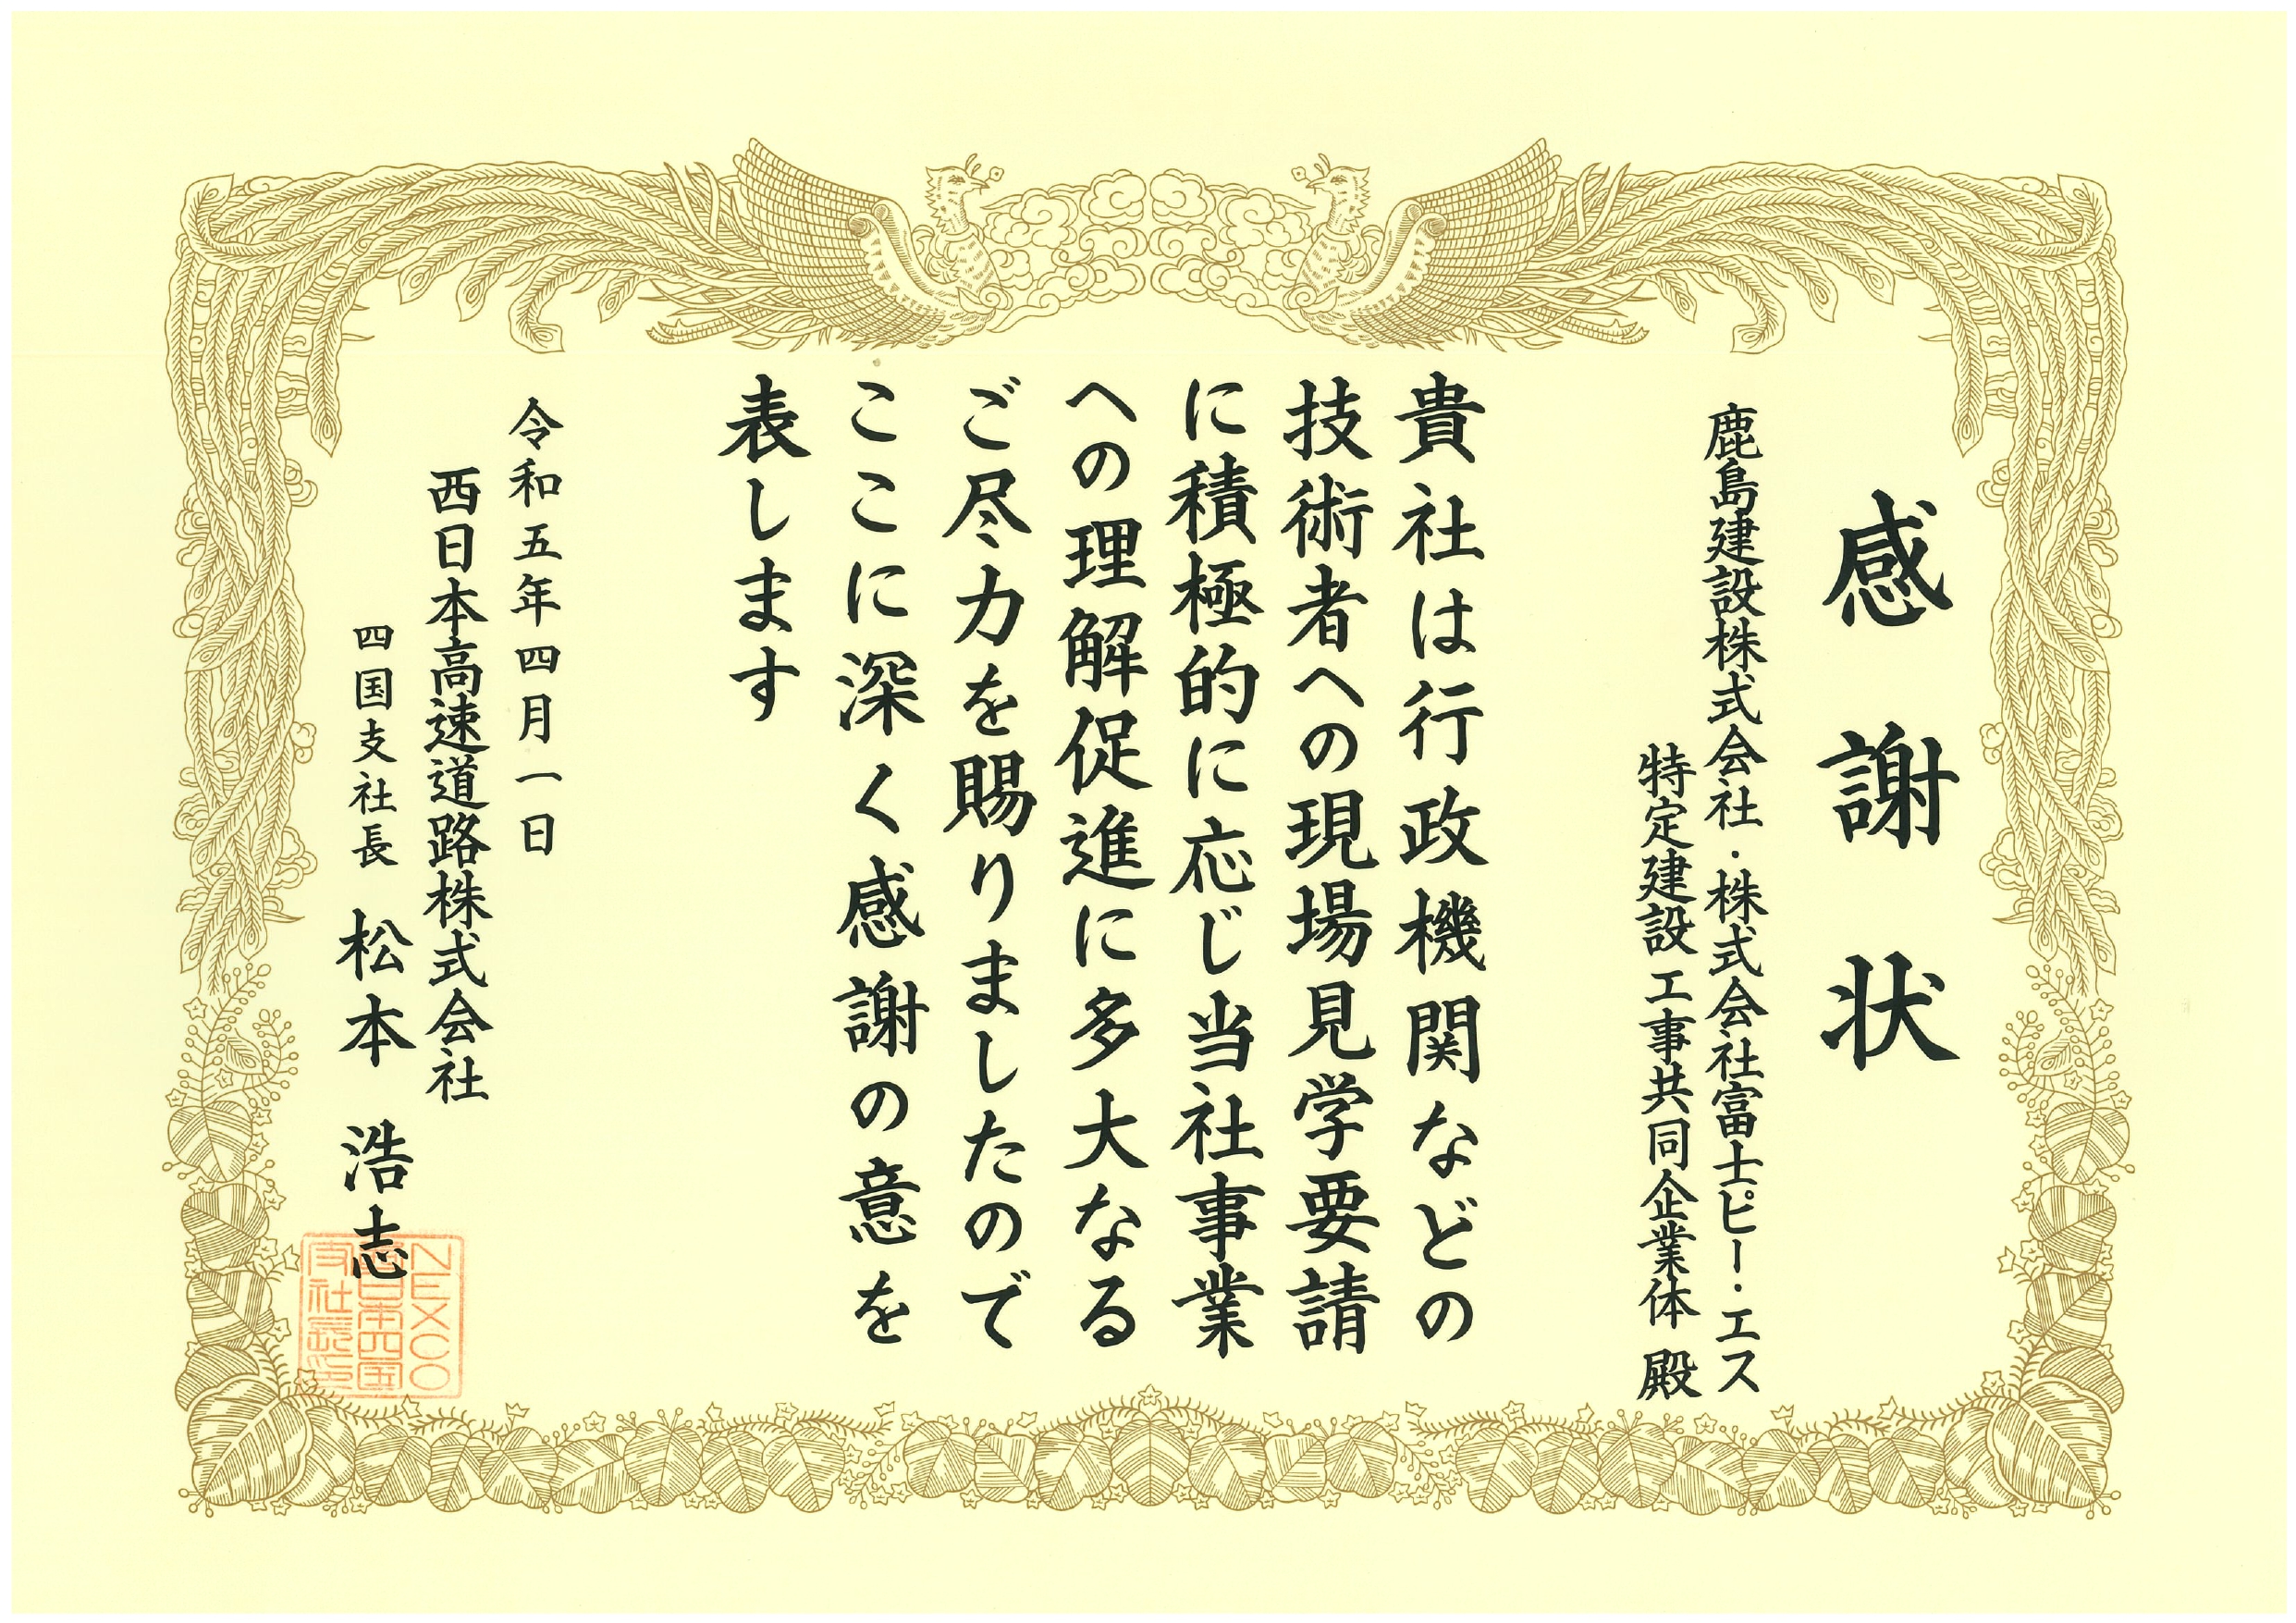 感謝状
鹿島建設株式会社・株式会社富士ピー・エス
特定建設工事共同企業体 殿
貴社は行政機関などの
技術者への現場見学要請
に積極的に応じ当社事業
への理解促進に多大なる
ご尽力を賜りましたので
ここに深く感謝の意を
表します
令和五年四月一日
西日本高速道路株式会社
四国支社長 松本 浩志
NEXCO
西日本四国
支社長印